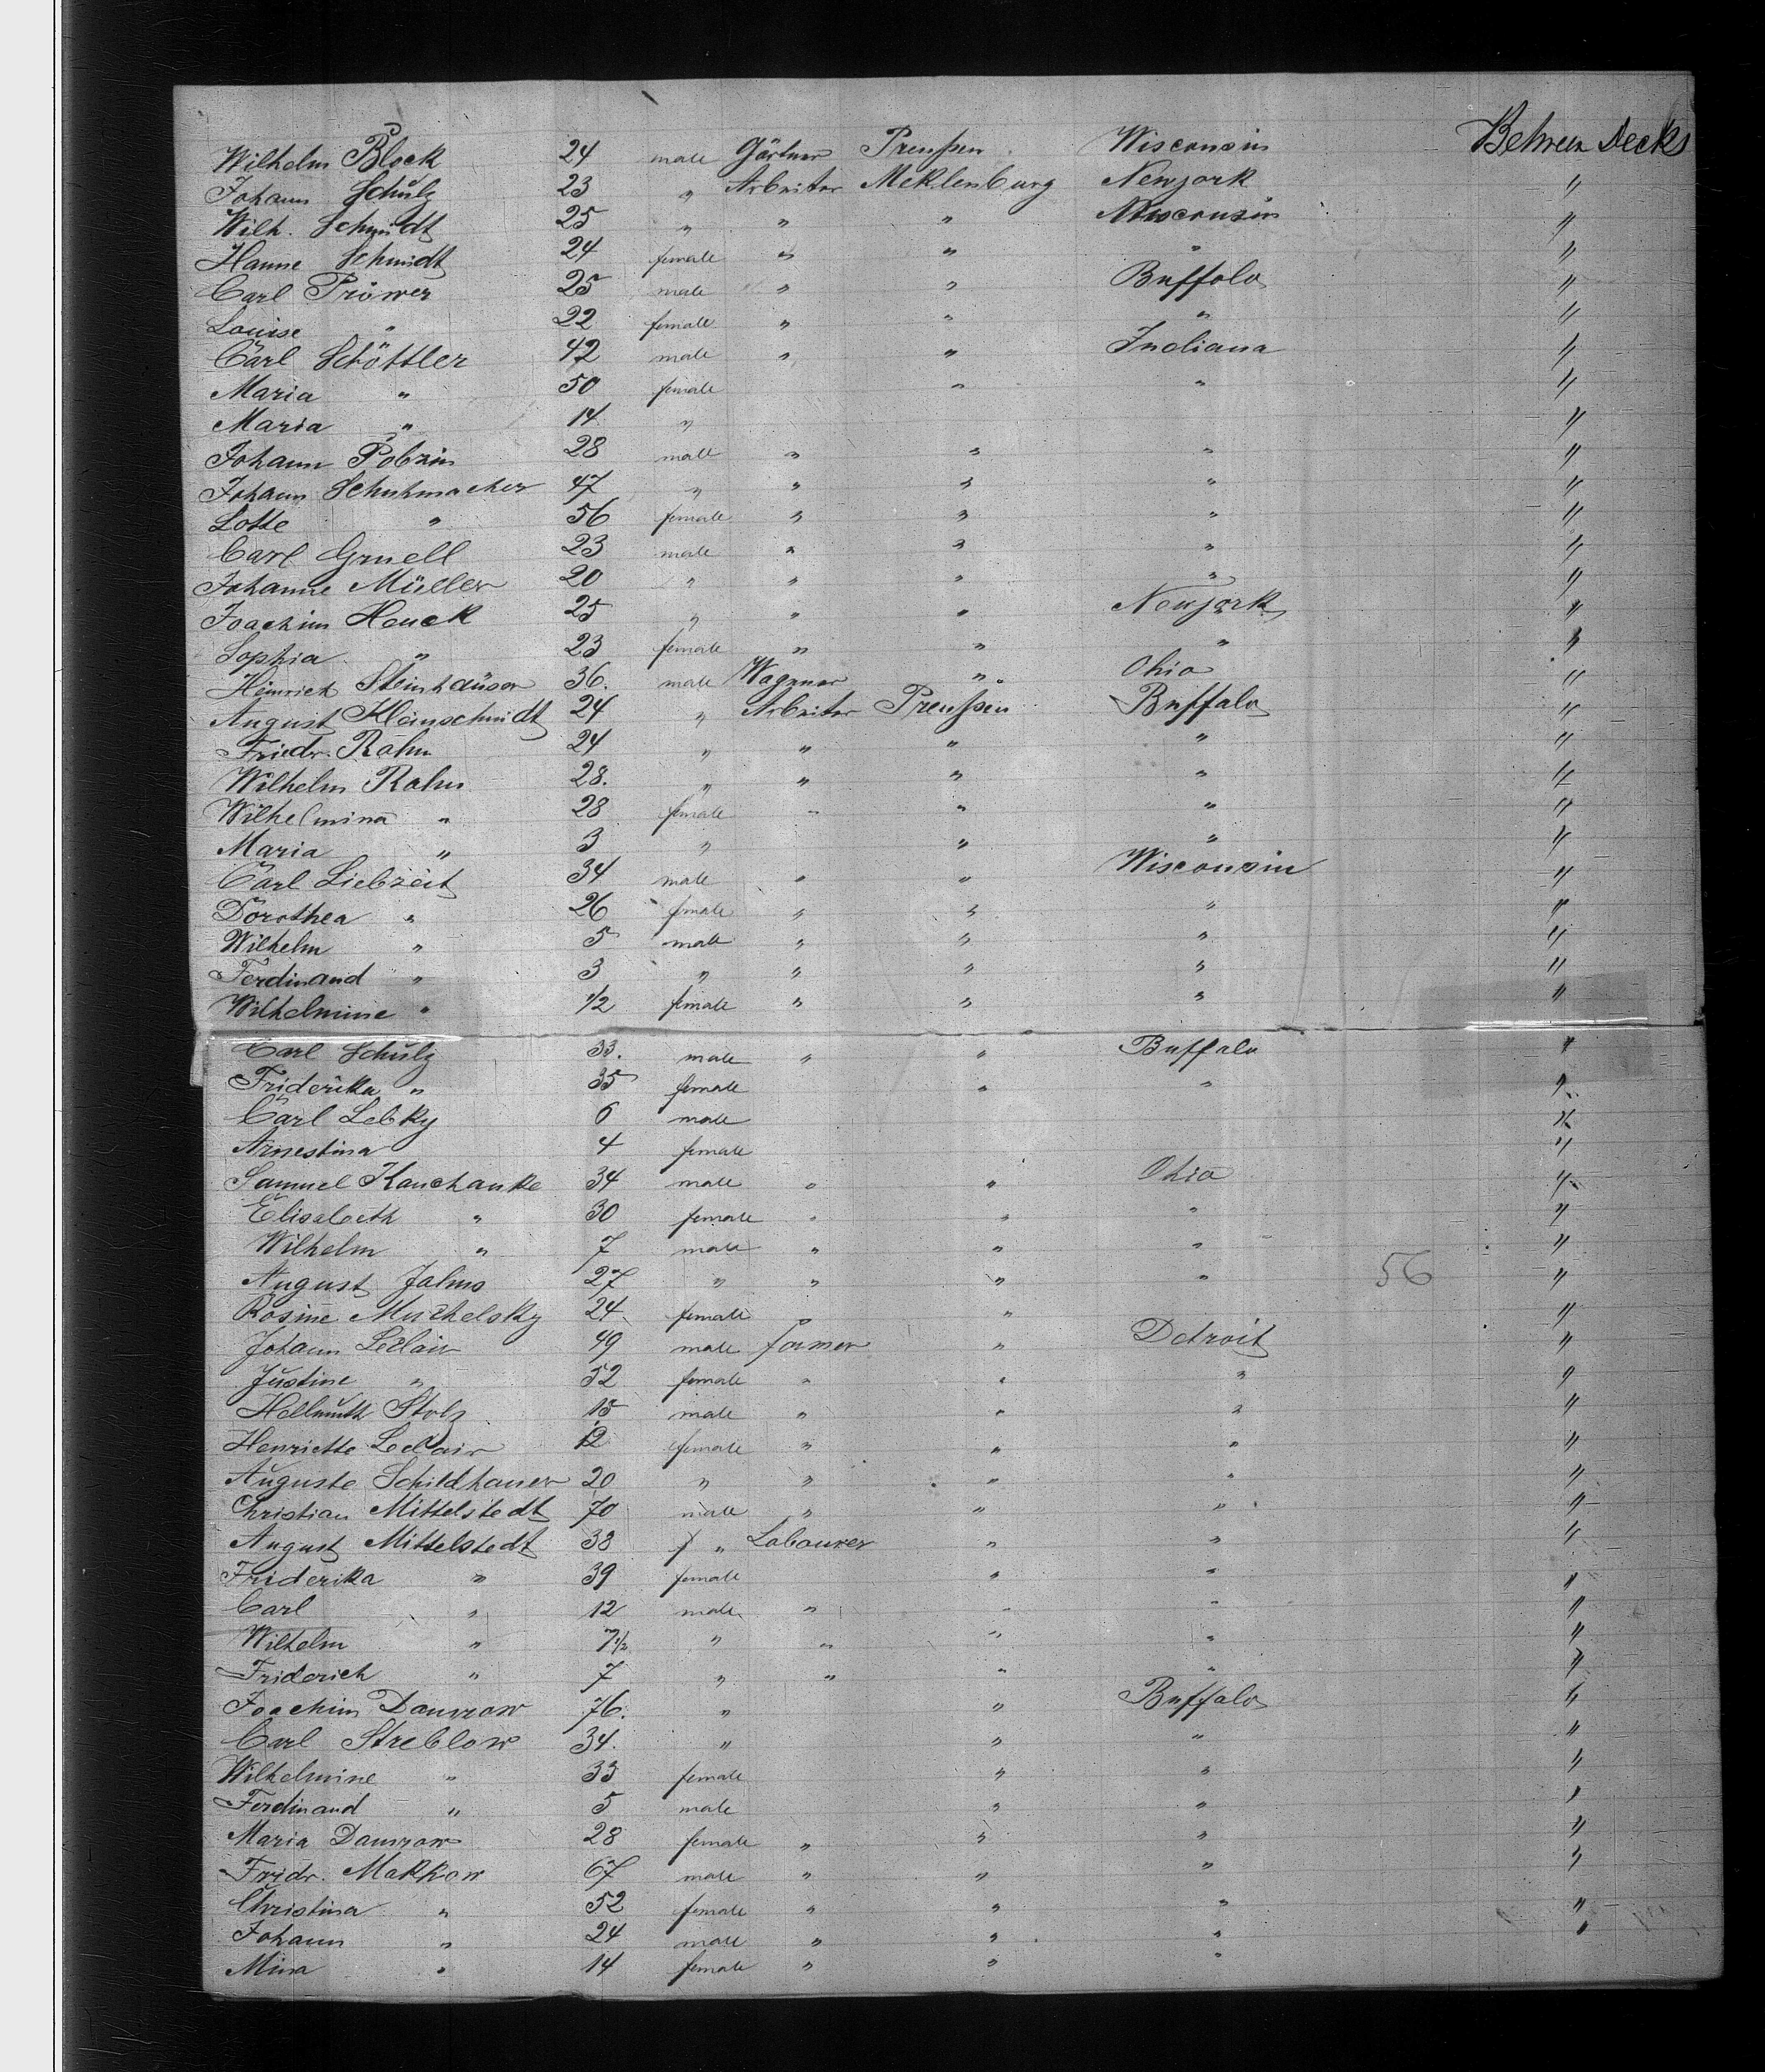 Wilhelm Block 24 male Gärtner Preußen Wisconsin Between Decks
Johann Schulz 23 " Arbeiter Meklenburg Newjork "
Wilh. Schmidt 25 " " " Wisconsin "
Hanne Schmidt 24 female " " " "
Carl Pröwer 25 male " " Buffalo "
Louise " 22 female " " " "
Carl Schöttler 42 male " " Indiana "
Maria " 50 female " " "
Maria " 14 " "
Johann Pobzin 28 male " " " "
Johann Schuhmacher 47 " " " " "
Lotte " 56 female " " " "
Carl Gruell 23 male " " " "
Johanne Müller 20 " " " " "
Joachim Hauck 25 " " " Newjork "
Sophia " 23 female " " " "
Heinrich Steinhäuser 36. male Wagner " Ohio "
August Kleinschmidt 24 " Arbeiter Preußen Buffalo "
Friedr. Rahn 24 " " " " "
Wilhelm Rahn 28. " " " " "
Wilhelmina " 28 female " " " "
Maria " 3 " " " "
Carl Liebzeit 34 male " " Wisconsin "
Dorothea " 26 female " " " "
Wilhelm " 5 male " " " "
Ferdinand " 3 " " " " "
Wilhelmine " 1/2 female " " " "
Carl Schulz 33. male " " Buffalo "
Friderika " 35 female " " "
Carl Lebky 6 male "
Arnestina 4 female "
Samuel Kauchanke 34 male " " Ohio "
Elisabeth " 30 female " " " "
Wilhelm " 7 male " " " "
August Jahns 27 " " " " 56 "
Rosine Muchelsky 24 female " "
Johann Leclair 49 male farmer " Detroit "
Justine " 52 female " " " "
Hellmuth Stolz 15 male " " " "
Henriette Leclair 12 female " " " "
Auguste Schildhauer 20 " " " " "
Christian Mittelstedt 70 male " " " "
August Mittelstedt 38 " Labourer " " "
Friderika " 39 female " " "
Carl " 12 male " " " "
Wilhelm " 7 1/2 " " " " "
Friderich " 7 " " " " "
Joachim Damrow 76. " " Buffalo "
Carl Streblow 34. " " " "
Wilhelmine " 33 female " " "
Ferdinand " 5 male " " "
Maria Damrow 28 female " " " "
Fridr. Makkow 67 male " " " "
Christina " 52 female " " " "
Johann " 24 male " " " "
Mina " 14 female " " "